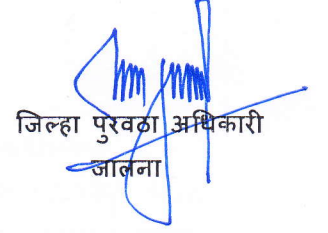 जिल्हा पुरवठा अधिकारी
जालना